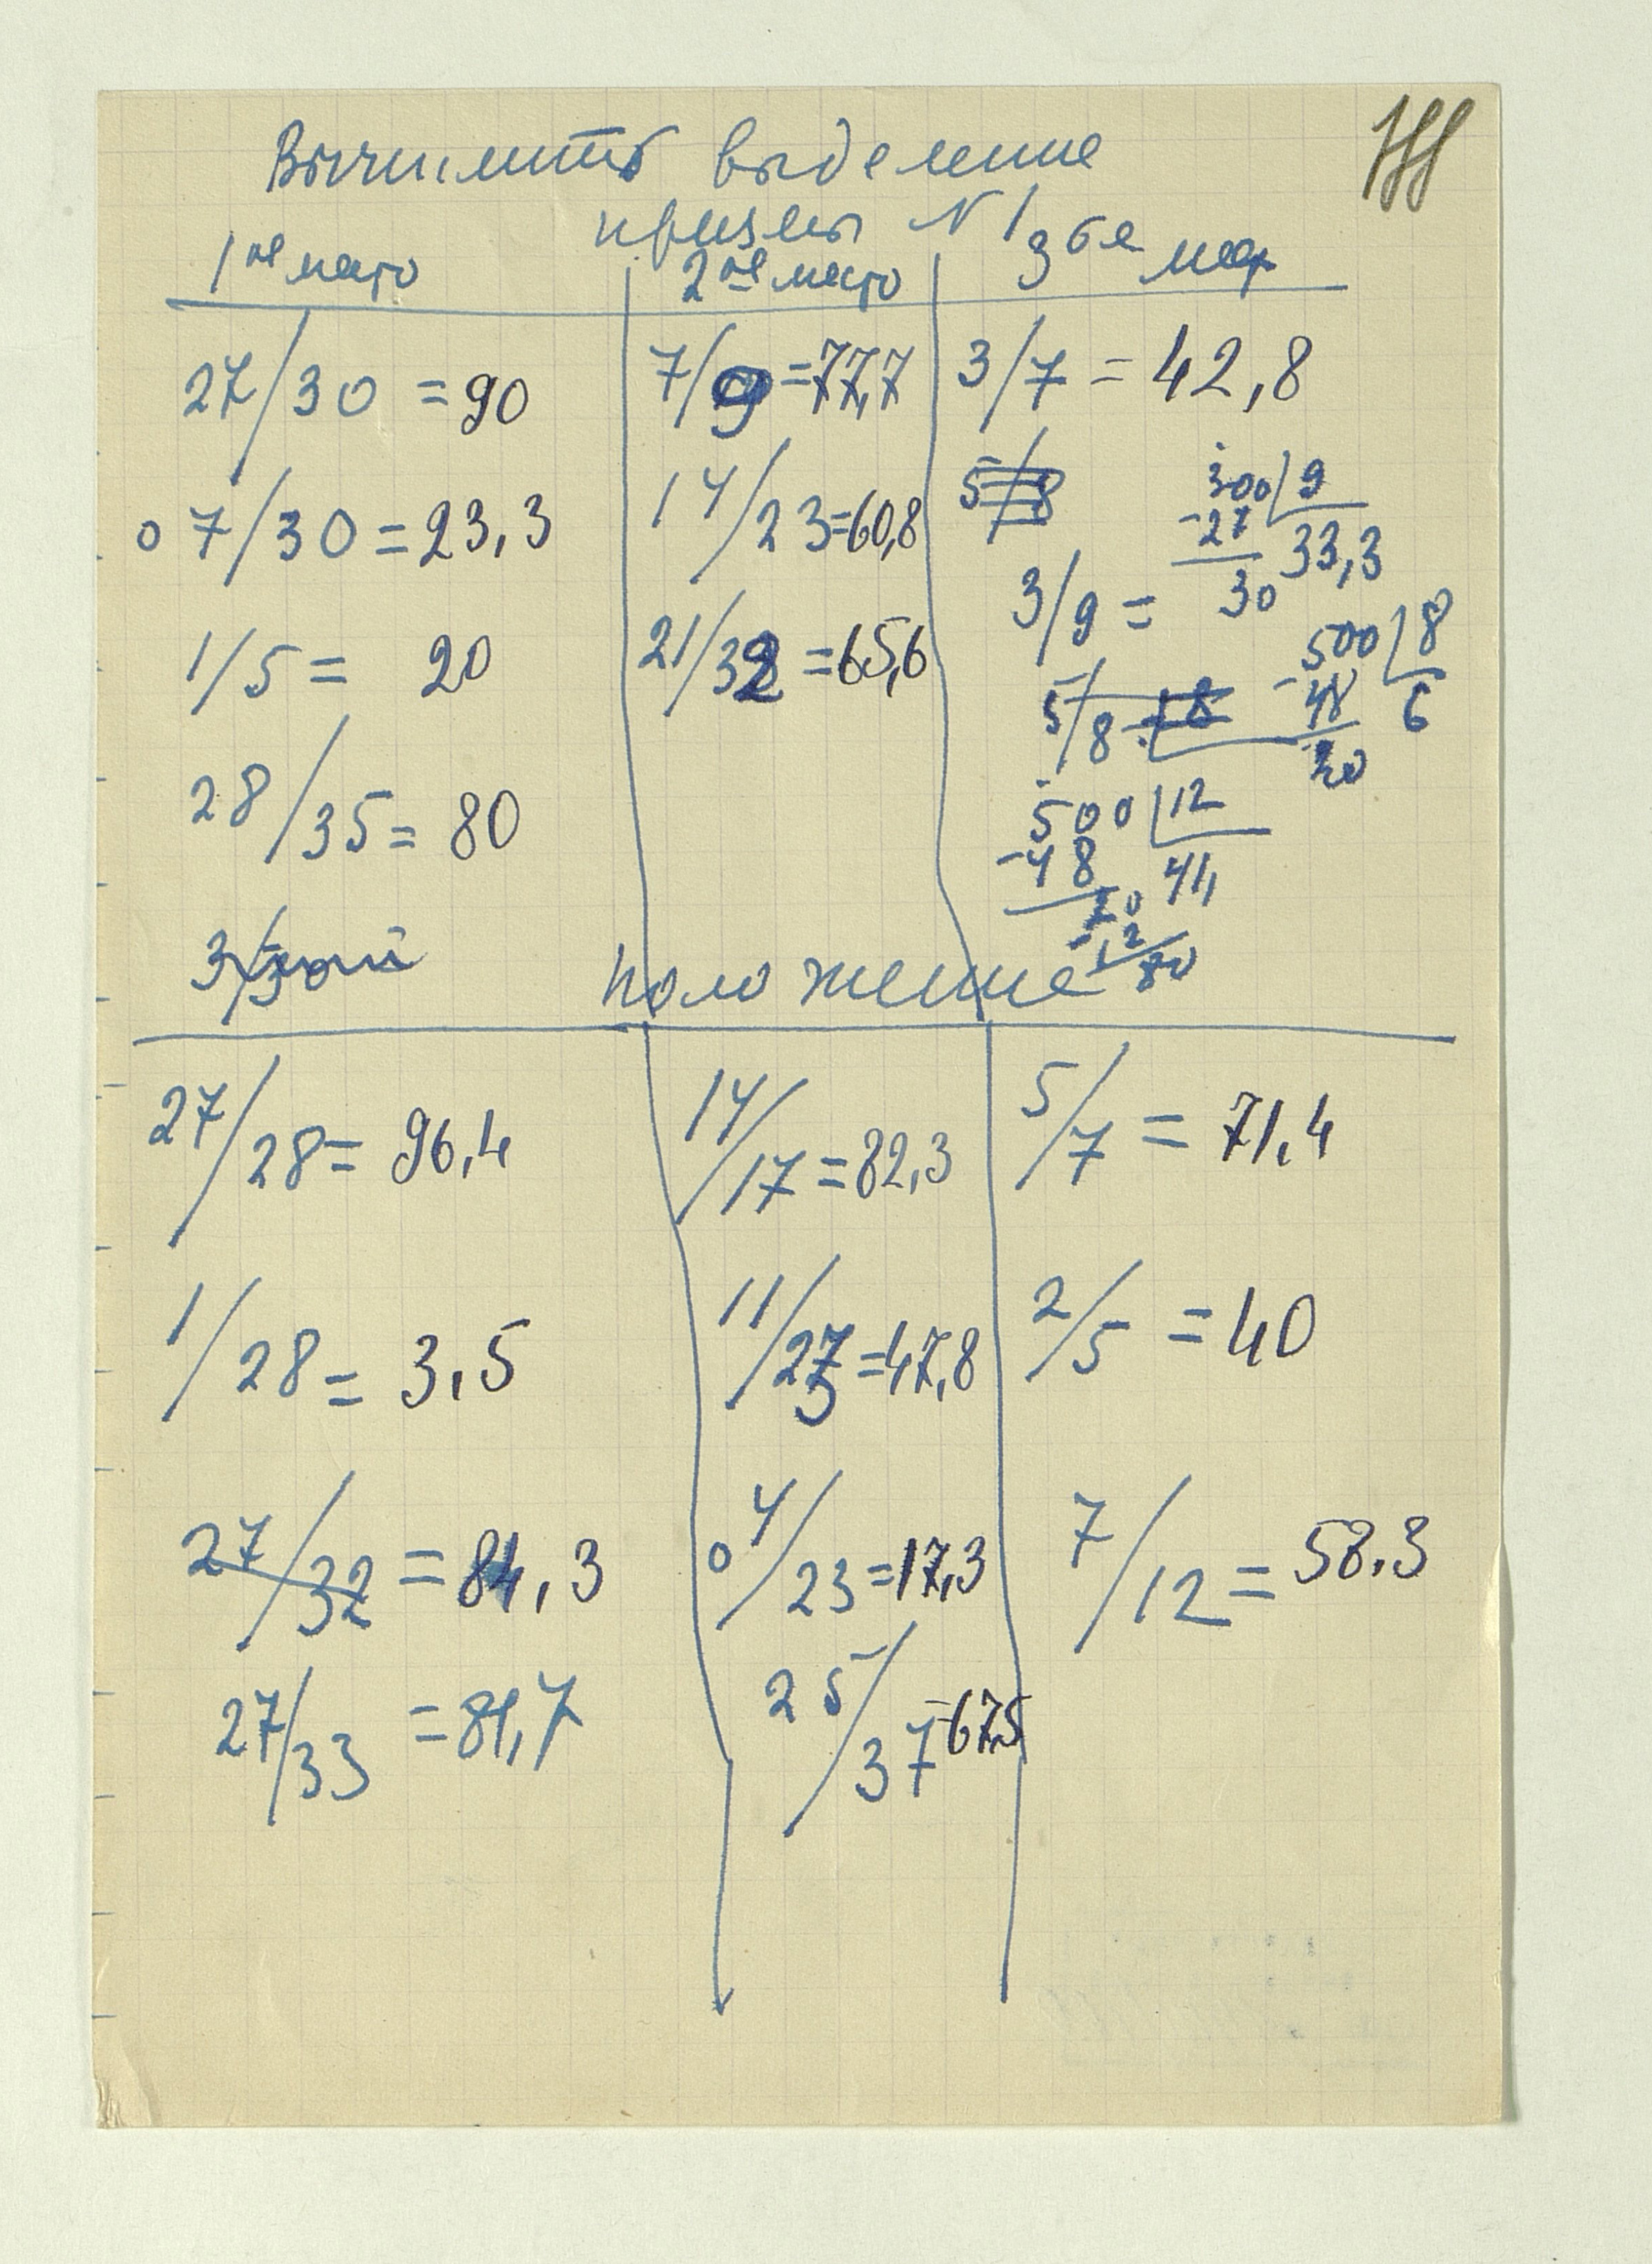 Вычислить выделение
призмы N 1
1ое место 2ое место 3ье мест
27/30 = 90 7/9 = 77,7 3/7 = 42,8
5/8
0 7/30 = 23,3 14/23 = 60,8
300 | 9
-27 33,3
30
3/9 =
1/5 = 20 21/32 = 65,6
500 | 8
-48 6
20
5/8
28/35 = 80
500 | 12
-48 41,
20
-12
80
положение
27/28 = 96,4 14/17 = 82,3 5/7 = 71,4
1/28 = 3,5 11/23 = 47,8 2/5 = 40
27/32 = 84,3 0 4/23 = 17,3 7/12 = 58,3
27/33 = 81,7 25/37 = 67,5